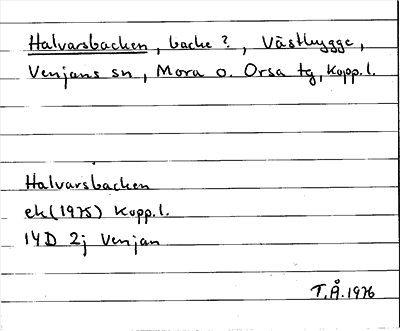 Halvarsbacken, backe?, Västbygge,
Venjans sn, Mora o. Orsa tg, Kopp.l.
Halvarsbacken
ek (1975) Kopp.l.
14D 2j Venjan
T.Å. 1976